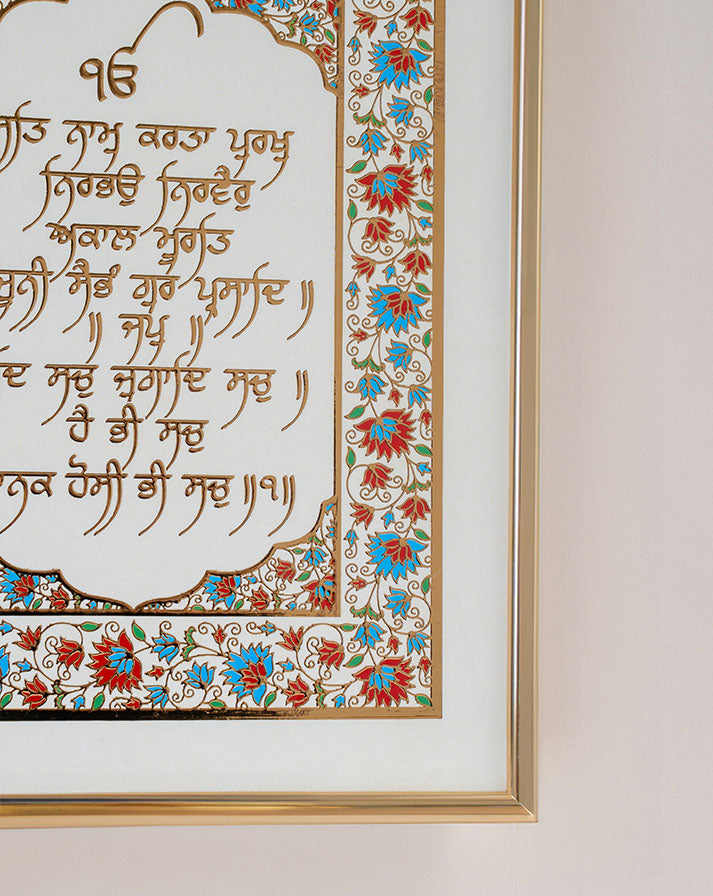 ੴ
ਸਤਿ ਨਾਮੁ ਕਰਤਾ ਪੁਰਖੁ
ਨਿਰਭਉ ਨਿਰਵੈਰੁ
ਅਕਾਲ ਮੂਰਤਿ
ਜੂਨੀ ਸੈਭੰ ਗੁਰ ਪ੍ਰਸਾਦਿ ॥
॥ ਜਪੁ ॥
ਸਚੁ ਜੁਗਾਦਿ ਸਚੁ ॥
ਹੈ ਭੀ ਸਚੁ
ਨਾਨਕ ਹੋਸੀ ਭੀ ਸਚੁ ॥੧॥